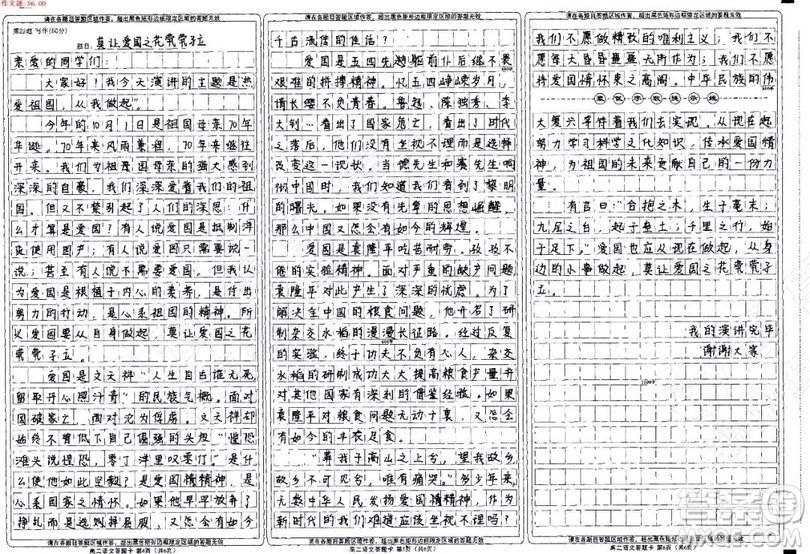 作文题:56.00
请在各题目答题区域作答,超出黑色矩形边框限定区域的答题无效
第22题 写作(60分)
题目:莫让爱国之花茕茕孑立
亲爱的同学们:
大家好!我今天演讲的主题是热
爱祖国,从我做起"。
今年的10月1日是祖国母亲70年
华诞。70年来风雨兼程,70年来继往
开来。我们为祖国母亲的强大感到
深深的自豪,我们深深爱着我们的祖
国。但又不禁引起了人们的深思:什
么才算是爱国?有人说爱国是抵制洋
货使用国产;有人说爱国只是说一
说;甚至有人说不需要爱国。但我认
为爱国是根植于内心的素养,是付出
努力的行动,是心系祖国的精神。所
以爱国要从自身做起,莫让爱国之花
茕茕孑立。
爱国是文天祥"人生自古谁无死,
留取丹心照汗青"的民族气概。面对
国破家亡,面对沦为俘虏。文天祥却
始终不肯低下自己倔强的头颅"惶恐
滩头说惶恐,零丁洋里叹零丁"是什
么使他如此坚毅?是爱国精神,是
心系国家之情怀。如果他早早放弃了
挣扎而是选择卑躬屈膝,又怎会有如今
请在各题目答题区域作答,超出黑色矩形边框限定区域的答题无效
高二语文答题卡 第4页(共6页)
请在各题目答题区域作答,超出黑色矩形边框限定区域的答题无效
千古流传的佳话?
爱国是五四先驱前仆后继不畏
艰难的拼搏精神。忆五四峥嵘岁月,
请长缨不负青春。鲁迅,陈独秀,李
大钊…看出了国家危亡,看出了时代
之落后,他们没有坐视不理而是选择
改变这一现状。当德先生和赛先生响
彻中国时,我们知道我们看到了黎明
的曙光,如果没有先辈的思想崛醒,
那么中国又怎会有如今的辉煌。
爱国是袁隆平吃苦耐劳,孜孜不
倦的实验精神。面对严重的缺产问题
袁隆平对此产生了深深的忧虑。为了
解决全中国的粮食问题,他开启了研
制杂交水稻的漫漫长征路。经过反复
的实验,终于功夫不负有心人,杂交
水稻的研制成功大大提高粮食产量并
对其他国家有深利的借鉴意义。如果
袁隆平对粮食问题无动于衷,又怎会
有如今的丰衣足食。
"葬我于高山之上兮,望我故乡,
故乡不可见兮,唯有痛哭。"多少年来,
无数中华人民发扬爱国情精神,作为
新时代的我们难道应该坐视不理吗?
请在各题目答题区域作答,超出黑色矩形边框限定区域的答题无效
高二语文答题卡 第5页(共6页)
请在各题目答题区域作答,超出黑色矩形边框限定区域的答题无效
我们不愿做精致的唯利主义;我们不
愿年大昏昏噩噩无所作为;我们不愿
待爱国情怀束之高阁。中华民族的伟
大复兴等待着我们去实现。从现在起
努力学习科学文化知识,传承爱国精
神,为祖国的未来贡献自己的一份力
量。
有言曰:"合抱之木,生于毫末;
九层之台,起于垒土;千里之行,始
于足下。"爱国也应从现在做起,从身
边的小事做起,莫让爱国之花茕茕孑
立。
我的演讲完毕
谢谢大家
请在各题目答题区域作答,超出黑色矩形边框限定区域的答题无效
高二语文答题卡 第6页(共6页)